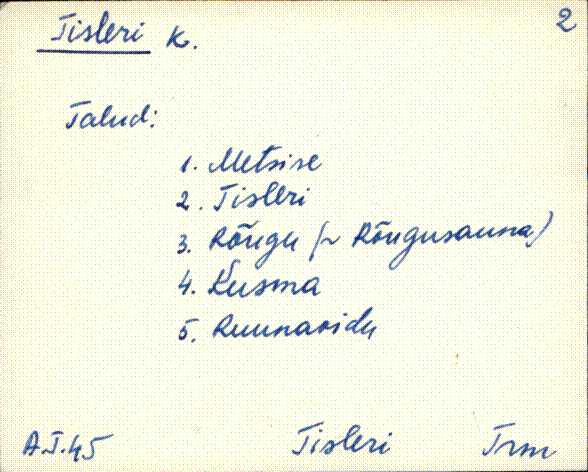 Tisleri k. 2
Talud:
1. Metsise
2. Tisleri
3. Rõugu (~ Rõugusauna)
4. Kusma
5. Ruunaoidu
A.J.45 Tisleri Trm